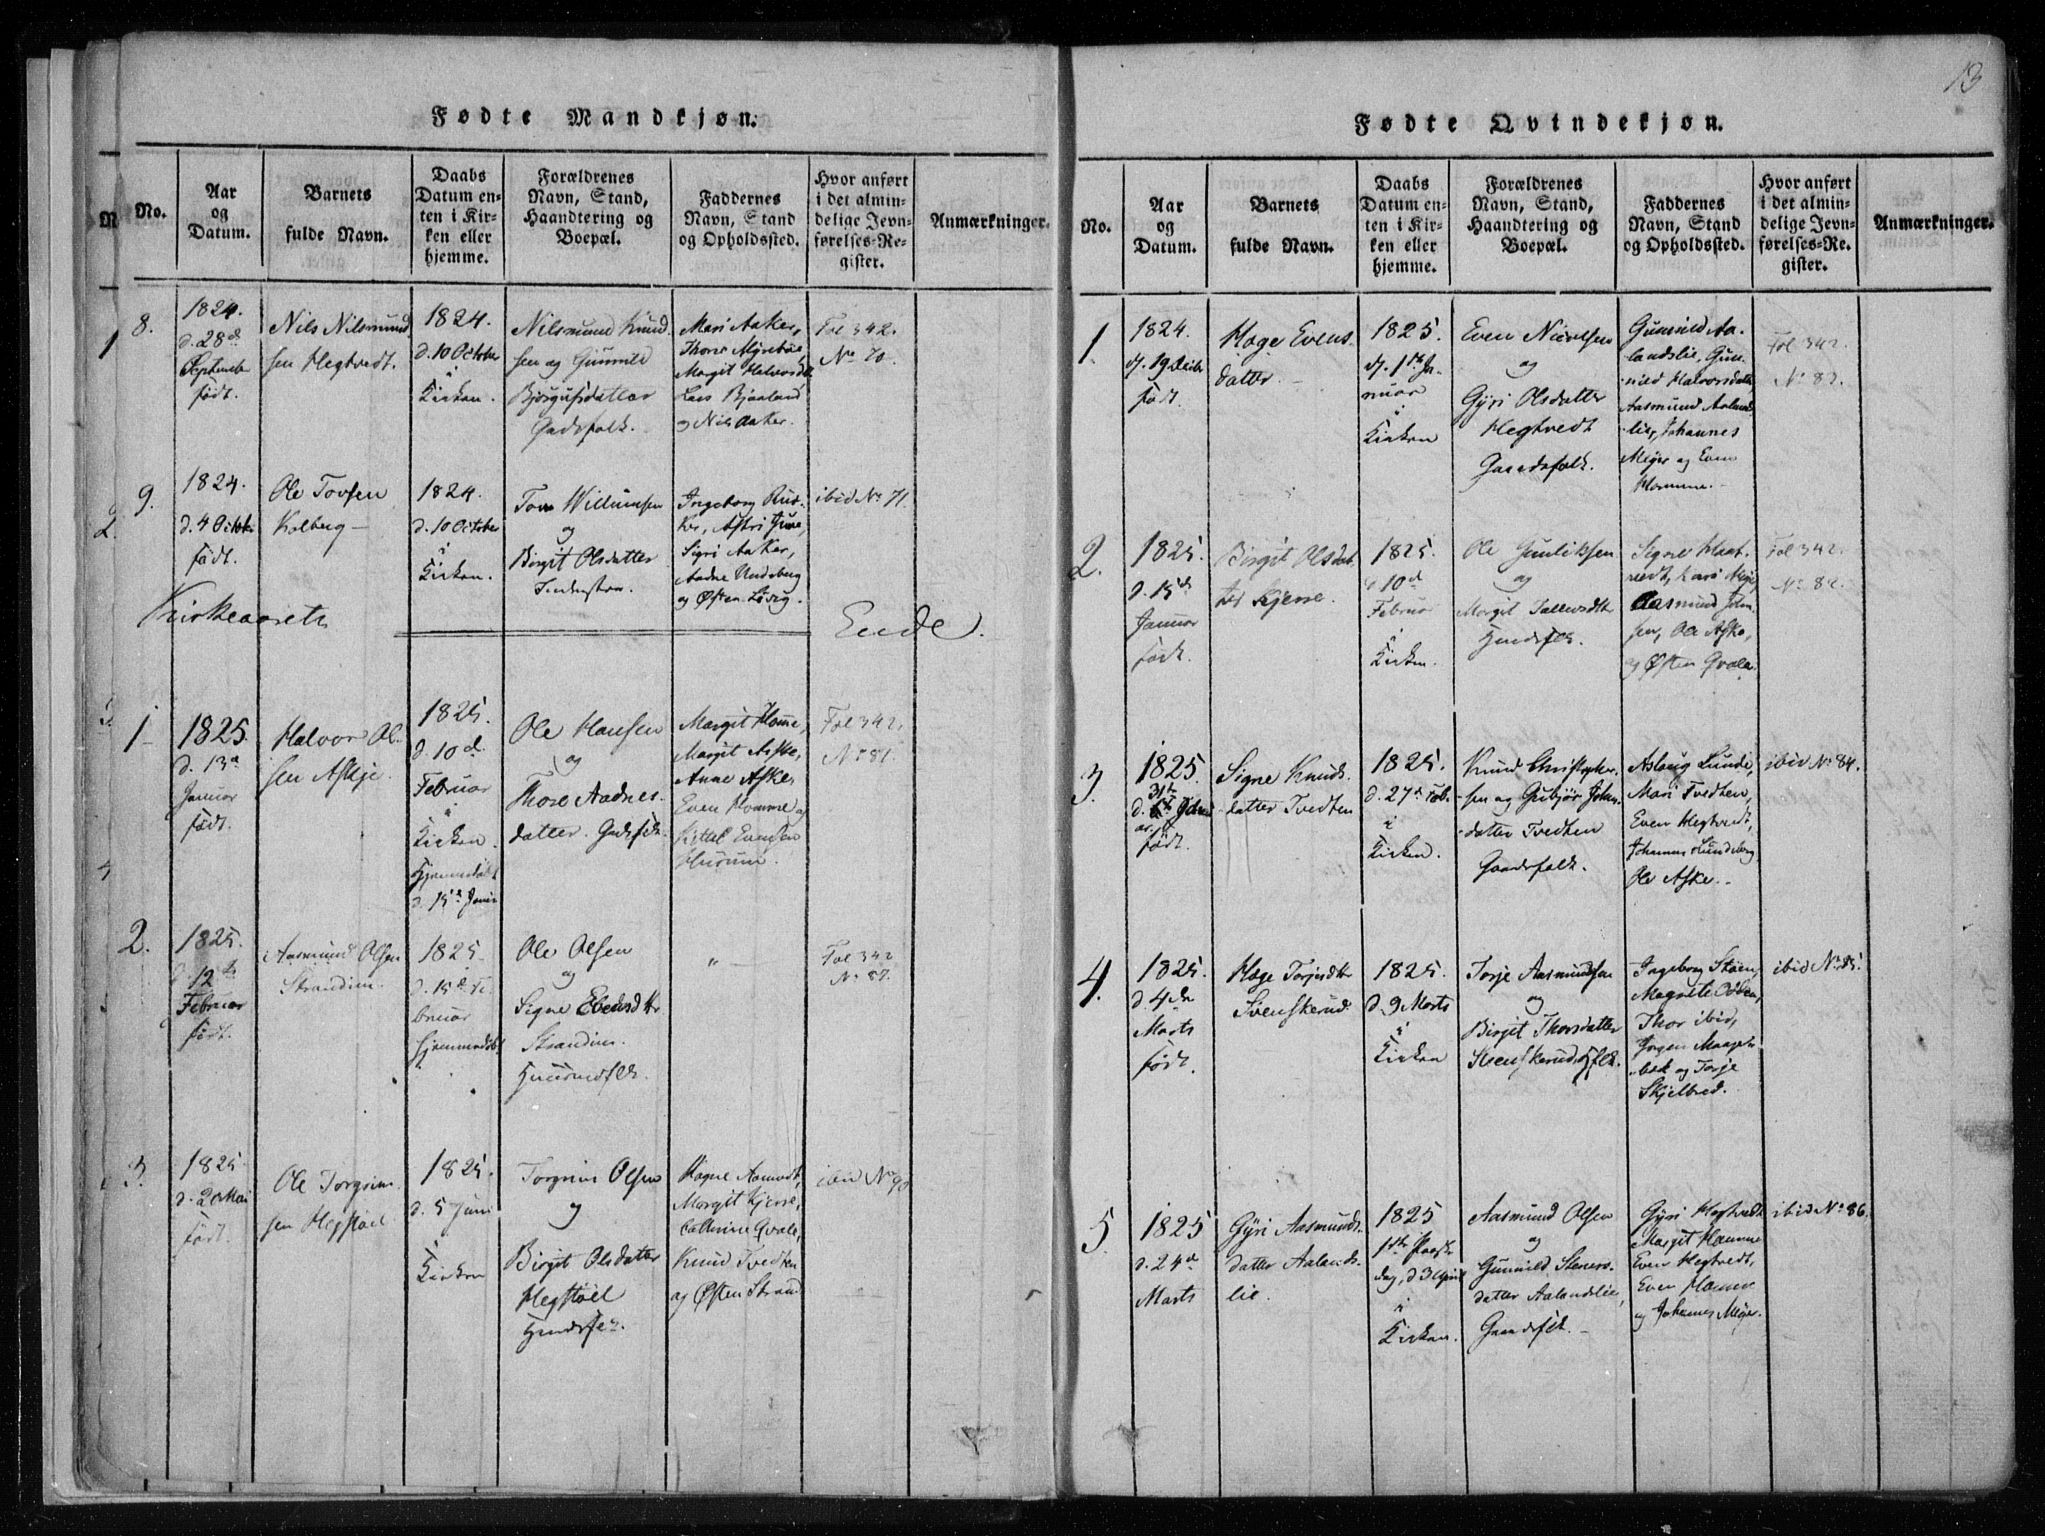 13
Fødte Mandkjøn.
No.
Aar
og
Datum.
Barnets
fulde Navn.
Daabs
Datum en-
ten i Kir-
ken eller
hjemme.
Forældrenes
Navn, Stand,
Haandtering og
Boepæl.
Faddernes
Navn, Stand
og Opholdssted.
Hvor anført
i det almin-
delige Jevn-
førelses-Re-
gister.
Anmærkninger.
8.
1824.
d. 28de
Septembr
født.
Nils Nilsmund
sen Hegtvedt.
1824.
d. 10 October
i
Kirken.
Nilsmund Knud
sen og Gunnild
Bjørgufsdatter
Gadsfolk.
Mari Aaker,
Thore Myrebøe,
Margit Halvorsd.
Lars Bjaaland
og Nils Aaker.
Fol 342.
No 70.
9.
1824.
d. 4 Octobr
født.
Ole Tovsen
Kolberg
1824.
d. 10 October
i
Kirken.
Tov Willumsen
og
Birgit Olsdatter
Ingeborg Rus-
ker, Astri June,
Sigri Aaker,
Aadne Undeberg
og Østen Løvig.
ibid No 71.
Kirkeaarets
Ende.
1
1825.
d. 13de
Januar
født.
Halvor Ol-
sen Askje.
1825.
d. 10de
Februar
i
Kirken.
Hjemmedøbt
d. 15de Janr
Ole Hansen
og
Thore Aadnes-
datter. Gadsfolk.
Margit Homme,
Margit Aske,
Anne Aske,
Even Homme og
Kittel Evensen
Husmm.
Fol 342.
No 81.
2.
1825.
12te
Februar
født.
Aasmund Olsen
Strandim.
1825.
d. 15de Fe
bruar
hjemmedøbt
Ole Olsen
og
Signe Evensdtr
Strandim.
Huusmdflk.
"
Fol 342
No 87.
3.
1825.
d. 20 Mai
født.
Ole Torgrim-
sen Hegstøel
1825.
d. 5 Juni
i
Kirken
Torgrim Olsen
og
Birgit Olsdatter
Hegstøel
Hage Aamodt,
Margit Kjerre,
Cathrine Qvale,
Knud Tvedten
og Østen Strand
ibid No 90
Fødte Qvindekjøn.
No.
Aar
og
Datum.
Barnets
fulde Navn.
Daabs
Datum en-
ten i Kir-
ken eller
hjemme.
Forældrenes
Navn, Stand,
Haandtering og
Boepæl.
Faddernes
Navn, Stand
og Opholdssted.
Hvor anført
i det almin-
delige Jevn-
førelses-Re-
gister.
Anmærkninger.
1.
1824.
d. 19 Decbr
født.
Hage Evens-
datter.
1825.
d. 1ste Ja-
nuar
i
Kirken
Even Nirelsen
og
Gyri Olsdatter
Hegtvedt
Gaardsfolk.
Gunnild Aa-
landslie, Gun-
nild Halvorsdatter
Aasmund Aalands
lie, Johannes
Meyer og Even
Homme.
Fol 342.
No 83.
2.
1825.
d. 15de
Januar
født.
Birgit Olsdat-
ter Kjerre.
1825.
d 10de
Februar
i
Kirken.
Ole Gunliksen
og
Margit Tallevsdtr
Signe Haat-
vedt, Kari Meyer
Aasmund John-
sen, Ole Aske,
og Østen Qvale.
Fol 342.
No 82.
3.
1825.
d. 31te Janu
ar
født.
Signe Knuds-
datter Tvedten
1825.
d. 27de Feb.
i
Kirken.
Knud Christopher-
sen og Gubjør John-
datter Tvedten
Gaardsfolk.
Aslaug Lunde,
Mari Tvedten,
Even Hegtvedt,
Johannes Lundeberg
Ole Aske.
ibid No 84.
4.
1825.
d 4de
Marts
født.
Hage Torjusdtr
Svenskerud
1825.
d. 9 Marts
i
Kirken
Torje Aasmundsen
og
Birgit Thorsdatter
Svenskerud
Ingeborg Støen,
Magnete Odden,
Thor ibid,
Jørgen Maages-
bek og Torje
Skjelbred.
ibid No 85.
5.
1825
d. 24de
Marts
Gyri Aasmunds-
datter Aalands-
lie.
1825
1ste Paaske
dag, d 3 April
i
Kirken.
Aasmund Olsen
og
Gunnild Steners-
datter Aalandslie,
Gaardsfolk.
Gyri Hegtvedt
Margit Homme
Even Hegtvedt,
Even Homme
og Johannes Meyer.
ibid No 86.